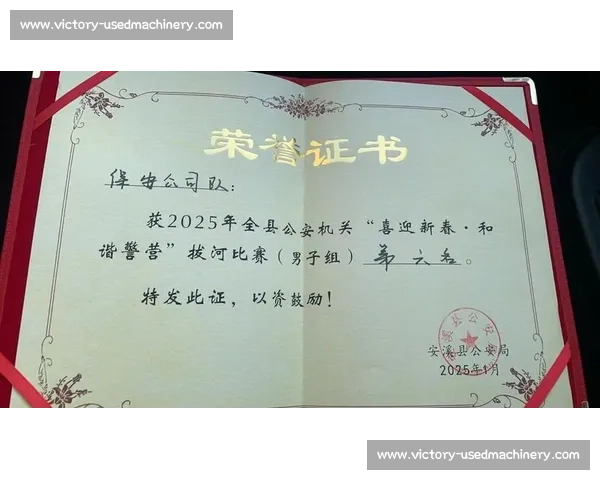 www.victory-usedmachinery.com
荣誉证书
保安公司队：
获2025年全县公安机关“喜迎新春·和
谐警营”拔河比赛（男子组）第六名。
特发此证，以资鼓励！
安溪县公安局
安溪县公安局
2025年1月
www.victory-usedmachinery.com